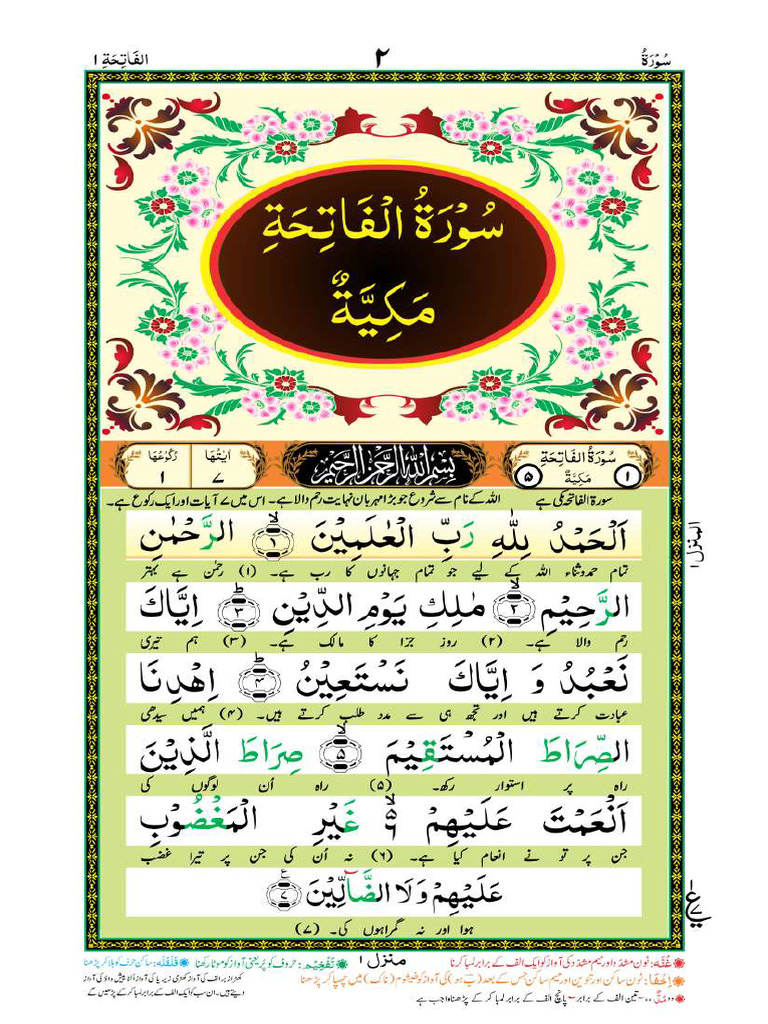 سُوۡرَةُ ٢ الفَاتِحَة ١
سُوۡرَةُ الۡفَاتِحَةِ
مَكِيَّةٌ
سُوۡرَةُ الۡفَاتِحَةِ ١ مَكِيَّةٌ ٥ بِسۡمِ اللّٰهِ الرَّحۡمٰنِ الرَّحِيۡمِ اٰيٰتُهَا ٧ رُكُوۡعُهَا ١
سورۃ الفاتحہ مکی ہے اللہ کے نام سے شروع جو بڑا مہربان نہایت رحم والا ہے۔ اس میں ۷ آیات اور ایک رکوع ہے۔
اَلۡحَمۡدُ لِلّٰهِ رَبِّ الۡعٰلَمِيۡنَ ۙ‏﴿۱﴾ الرَّحۡمٰنِ
تمام حمد وثناء اللہ کے لیے جو تمام جہانوں کا رب ہے۔ (۱) رحمٰن ہے بہتر
الرَّحِيۡمِ ۙ‏﴿۲﴾ مٰلِكِ يَوۡمِ الدِّيۡنِ ؕ‏﴿۳﴾ اِيَّاكَ
رحم والا ہے۔ (۲) روزِ جزا کا مالک ہے۔ (۳) ہم تیری
نَعۡبُدُ وَ اِيَّاكَ نَسۡتَعِيۡنُ ؕ‏﴿۴﴾ اِهۡدِنَا
عبادت کرتے ہیں اور تجھ ہی سے مدد طلب کرتے ہیں۔ (۴) ہمیں سیدھی
الصِّرَاطَ الۡمُسۡتَقِيۡمَ ۙ‏﴿۵﴾ صِرَاطَ الَّذِيۡنَ
راہ پر استوار رکھ۔ (۵) راہ اُن لوگوں کی
اَنۡعَمۡتَ عَلَيۡهِمۡ ۙ۬‏۶ غَيۡرِ الۡمَغۡضُوۡبِ
جن پر تو نے انعام کیا ہے۔ (۶) نہ اُن کی جن پر تیرا غضب
عَلَيۡهِمۡ وَلَا الضَّآلِّيۡنَ ‏﴿۷﴾ ع
ہوا اور نہ گمراہوں کی۔ (۷)
المنزل ۱
منزل ۱
غُنَّہ: نون مشدّد اور میم مشدّد کی آواز کو ایک الف کے برابر لمبا کرنا تَفْخِیْم: حروف کو پُر یعنی آواز کو موٹا رکھنا قَلْقَلَہ: ساکن حرف کو ہلا کر پڑھنا
اِخْفَا: نون ساکن اور تنوین اور میم ساکن جس کے بعد (ب) ہو کی آواز کو خیشوم (ناک) میں چھپا کر پڑھنا